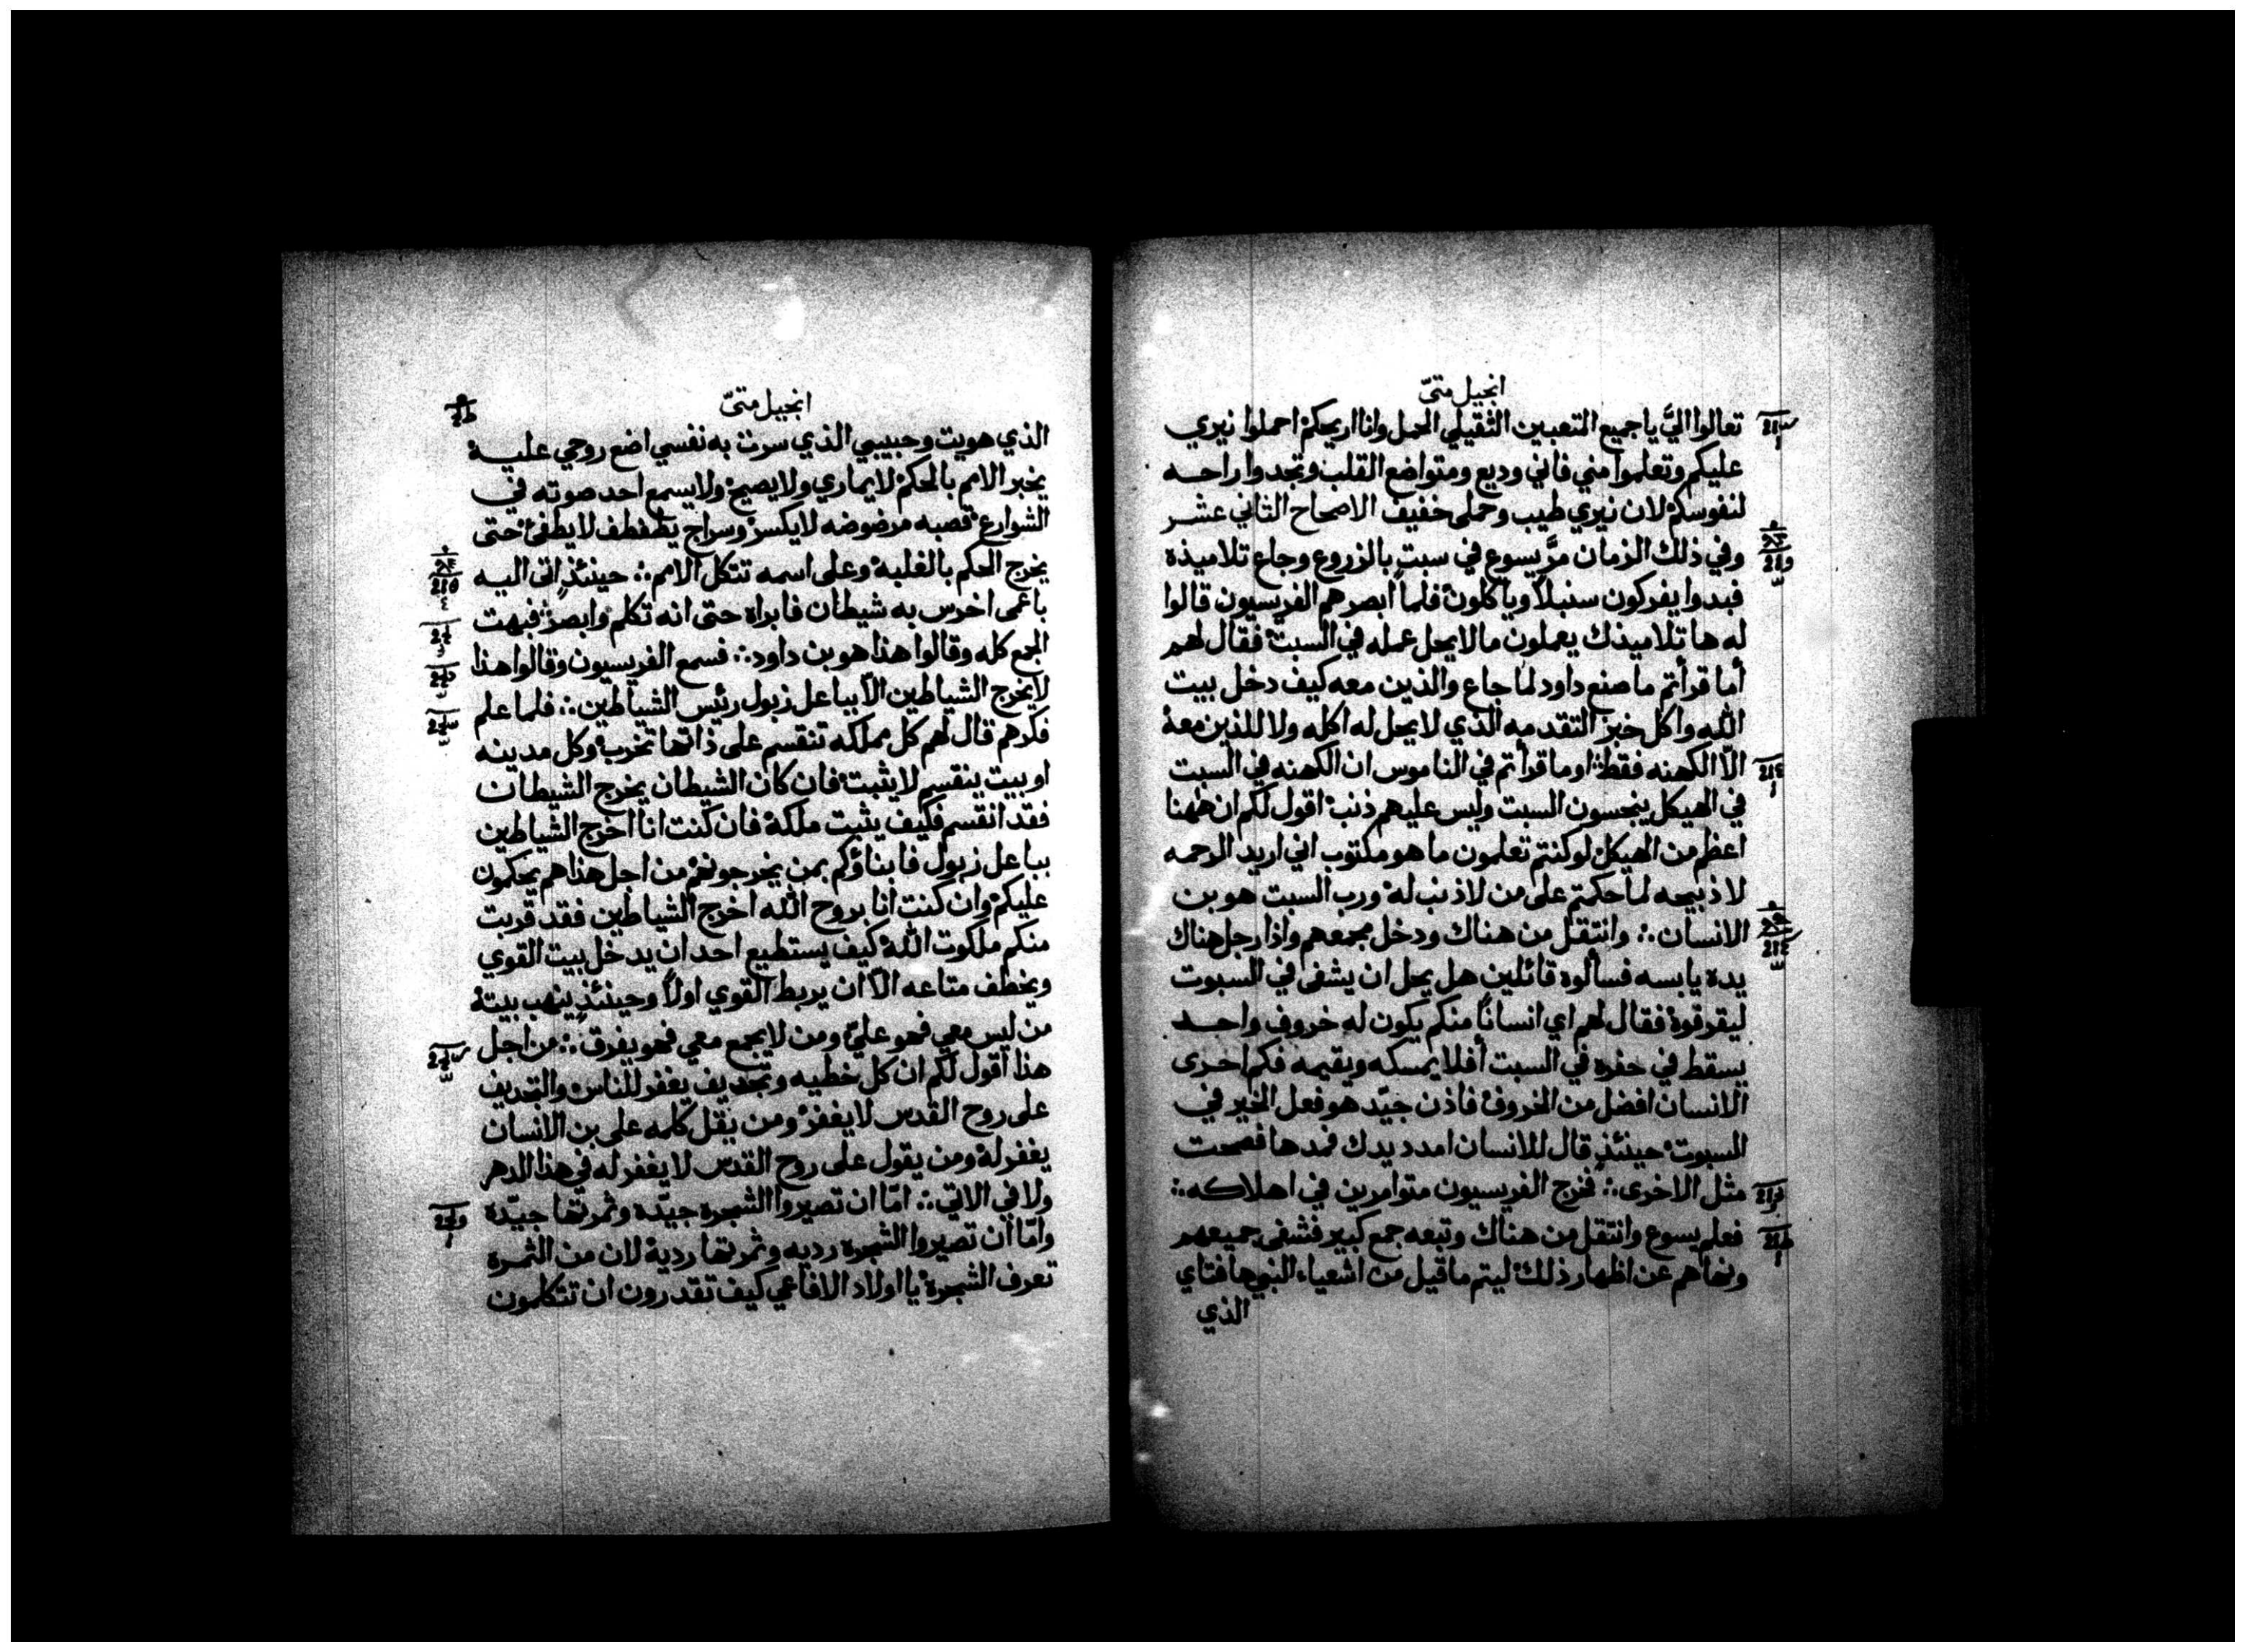 انجيل متىّ
تعالوا اليَّ يا جميع التعبين الثقيلي الحمل وانا اريحكم احملوا نيري
عليكم وتعلموا مني فاني وديع ومتواضع القلب وتجدوا راحه
لنفوسكم لان نيري طيب وحملى خفيف الاصحاح الثاني عشر
وفي ذلك الزمان مرَّ يسوع في سبت بالزروع وجاع تلاميذه
فبدوا يفركون سنبلاً وياكلون فلما ابصرهم الفريسيون قالوا
له ها تلاميذك يعملون ما لا يحل عمله في السبت فقال لهم
أما قرأتم ما صنع داود لما جاع والذين معه كيف دخل بيت
الله واكل خبز التقدمه الذي لا يحل له اكله ولا للذين معه
الاّ الكهنه فقط اوما قرأتم في الناموس ان الكهنه في السبت
في الهيكل ينجسون السبت وليس عليهم ذنب اقول لكم ان ههنا
اعظم من الهيكل لو كنتم تعلمون ما هو مكتوب اني اريد الرحمه
لا ذبيحه لما حكمتم على من لا ذنب له ورب السبت هو بن
الانسان ؞ وانتقل من هناك ودخل مجمعهم واذا رجل هناك
يده يابسه فسألوه قائلين هل يحل ان يشفى في السبوت
ليقرفوه فقال لهم اي انساناً منكم يكون له خروف واحد
يسقط في حفره في السبت أفلا يمسكه ويقيمه فكم احرى
الانسان افضل من الخروف فاذن جيّد هو فعل الخير في
السبوت حينئذٍ قال للانسان امدد يدك فمدها فصحت
مثل الاخرى ؞ فخرج الفريسيون متوامرين في اهلاكه ؞
فعلم يسوع وانتقل من هناك وتبعه جمع كبير فشفى جميعهم
ونهاهم عن اظهار ذلك ليتم ما قيل من اشعياء النبي ها فتاي
الذي
انجيل متىّ
الذي هويت وحبيبي الذي سرت به نفسي اضع روحي عليه
يخبر الامم بالحكم لا يماري ولا يصيح ولا يسمع احد صوته في
الشوارع قصبه مرضوضه لا يكسر وسراج يطفطف لا يطفئ حتى
يخرج الحكم بالغلبة وعلى اسمه تتكل الامم ؞ حينئذٍ اتى اليه
باعمى اخرس به شيطان فابراه حتى انه تكلم وابصر فبهت
الجمع كله وقالوا هذا هو بن داود ؞ فسمع الفريسيون وقالوا هذا
لا يخرج الشياطين الاّ بباعل زبول رئيس الشياطين ؞ فلما علم
فكرهم قال لهم كل مملكه تنقسم على ذاتها تخرب وكل مدينه
او بيت ينقسم لا يثبت فان كان الشيطان يخرج الشيطان
فقد انقسم فكيف يثبت ملكه فان كنت انا اخرج الشياطين
بباعل زبول فابناؤكم بمن يخرجونهم من اجل هذا هم يحكمون
عليكم وان كنت انا بروح الله اخرج الشياطين فقد قربت
منكم ملكوت الله كيف يستطيع احد ان يدخل بيت القوي
ويخطف متاعه الاّ ان يربط القوي اولاً وحينئذٍ ينهب بيته
من ليس معي فهو عليّ ومن لا يجمع معي فهو يفرق ؞ من اجل
هذا اقول لكم ان كل خطيه وتجديف يغفر للناس والتجديف
على روح القدس لا يغفر ومن يقل كلمه على بن الانسان
يغفر له ومن يقول على روح القدس لا يغفر له في هذا الدهر
ولا في الاتي ؞ امّا ان تصيروا الشجره جيّده وثمرتها جيّده
وامّا ان تصيروا الشجره رديه وثمرتها ردية لان من الثمره
تعرف الشجرة يا اولاد الافاعي كيف تقدرون ان تتكلمون